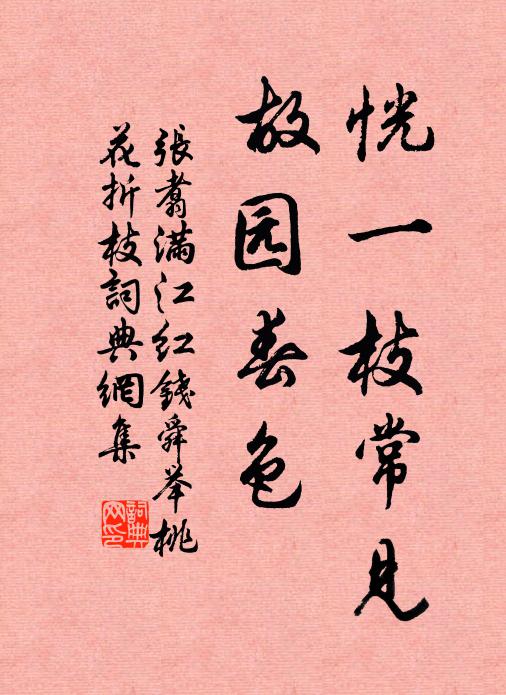 恍一枝常見
故园春色
張翥滿江紅錢舜举桃
花折枝詞典網集
詞典
网印